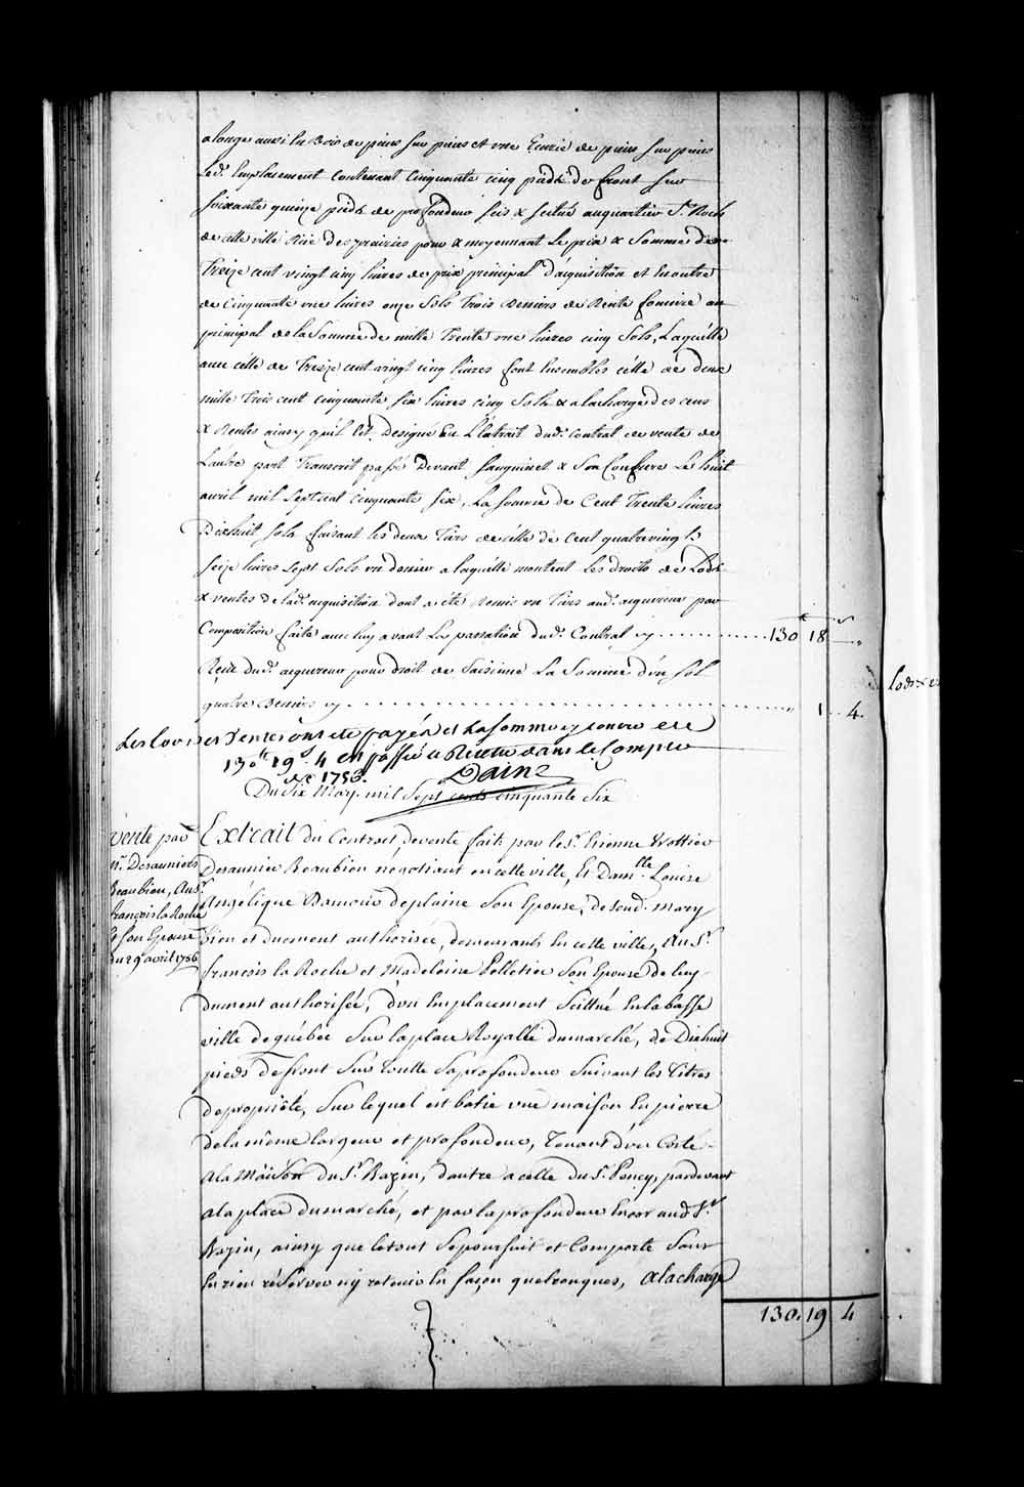 alonge aussi En Bois de pieux sur pieux et une Ecurie de pieux sur pieux
Led. Emplacement Contenant Cinquante cinq pieds de front sur
soixante quinze pieds de profondeur sis & scitué au quartier St. Roch
de cette ville Rüe des prairies pour & moyennant Le prix & Somme de
Treize cent vingt cinq livres de prix principal d'acquisition et En outre
de Cinquante une livres onze Sols Trois Deniers de Rente fonciere au
principal de la Somme de mille Trente une livres cinq Sols, Laquélle
avec célle de Treize cent vingt cinq livres font Ensembles célle de deux
mille Trois cent cinquante six livres cinq Sols & a la charge des cens
& Rentes ainsy qu'il est Designé En L'Extrait dud. Contrat de vente de
Lautre part Transcrit passé Devant Sanguinet & Son Confrere Le huit
avril mil Sept cent Cinquante Six, La Somme de Cent Trente livres
Dixhuit sols faisant les deux Tiers de célle de Cent quatrevingts
seize livres Sept Sols un denier a laquélle montent Les droits de Lods
& ventes de lad. acquisition dont a été Remis un Tiers aud. acquereur par
Composition faite avec luy avant La passation dud. Contrat cy 130 18 "
Reçu dud. acquereur pour droit de Saisinne La Somme d'un sol
quatre Deniers cy " 1 4.
Les Lods et Ventes ont été payés et La somme cy contre de
130lt 19s. 4 en passé a Recette dans le Compte
de 1756. Daine
Du Six May mil Sept cents cinquante Six
Vente par
Sr. Desauniers
Beaubien, Au Sr.
françois la Roche
Et son Epouse
du 29e avril 1756
Extrait du Contrat de vente fait par le Sr. Etienne Trottier
Desaunier Beaubien négotiant en cette ville, Et Damlle. Louise
Angélique Damours deplaine Son Epouse, de sond. Mary
Bien et duement authorisée, demeurants En cette ville, Au Sr.
françois la Roche et Madeleine Pelletier Son Epouse de luy
duement authorisée, d'un Emplacement Scittué En la basse
ville de québec Sur la place Royalle du marché, de Dixhuit
pieds de front Sur toutte Sa profondeur Suivant les Titres
de propriété, Sur lequel est batie une maison En pierre
de la même largeur et profondeur, Tenant d'un Coste
A la Maison du Sr. Bazin, d'autre a celle du Sr. Perrey, par devant
a la place du marché, et par la profondeur Encor aud. Sr.
Bazin, ainsy que le tout Se poursuit et Comporte Sans
En rien réserver ny retenir En façon quelconques, A la charge
130. 19 4